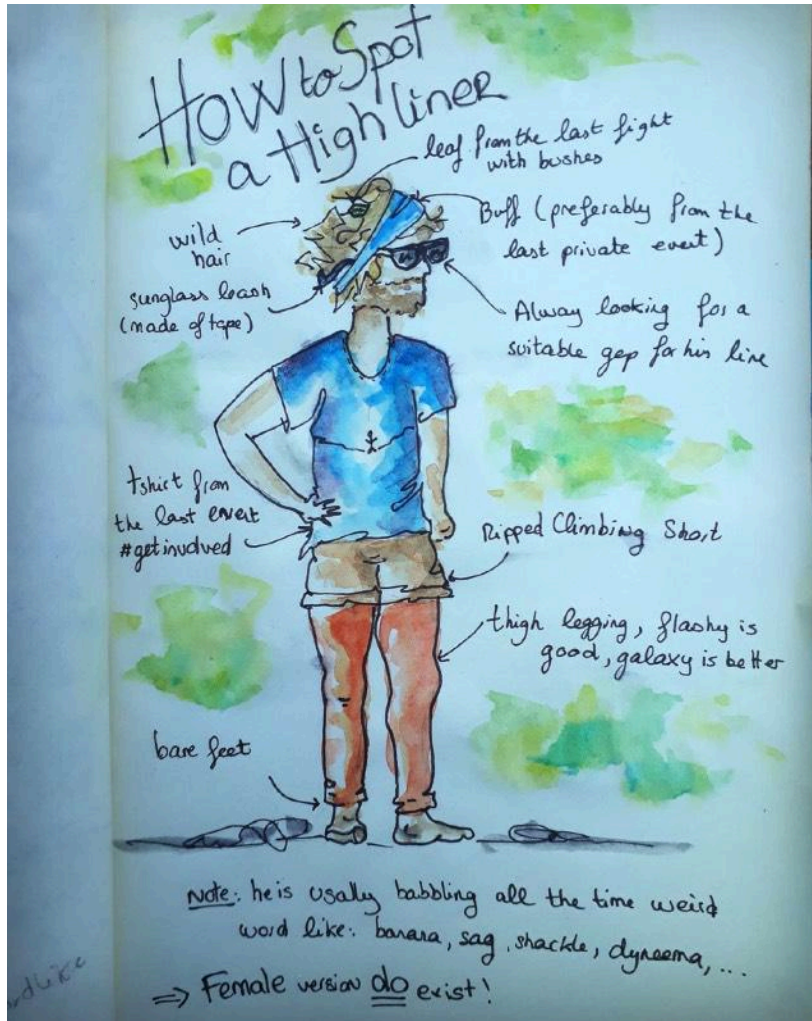 How to Spot
a High liner
leaf from the last fight
with bushes
wild
hair
Buff (preferably from the
last private event)
sunglass leash
(made of tape)
Alway looking for a
suitable gap for his line
tshirt from
the last event
#getinvolved
Ripped Climbing Short
thigh legging, flashy is
good, galaxy is better
bare feet
Note: he is usally babbling all the time weird
word like: banana, sag, shackle, dyneema, ...
=> Female version do exist!